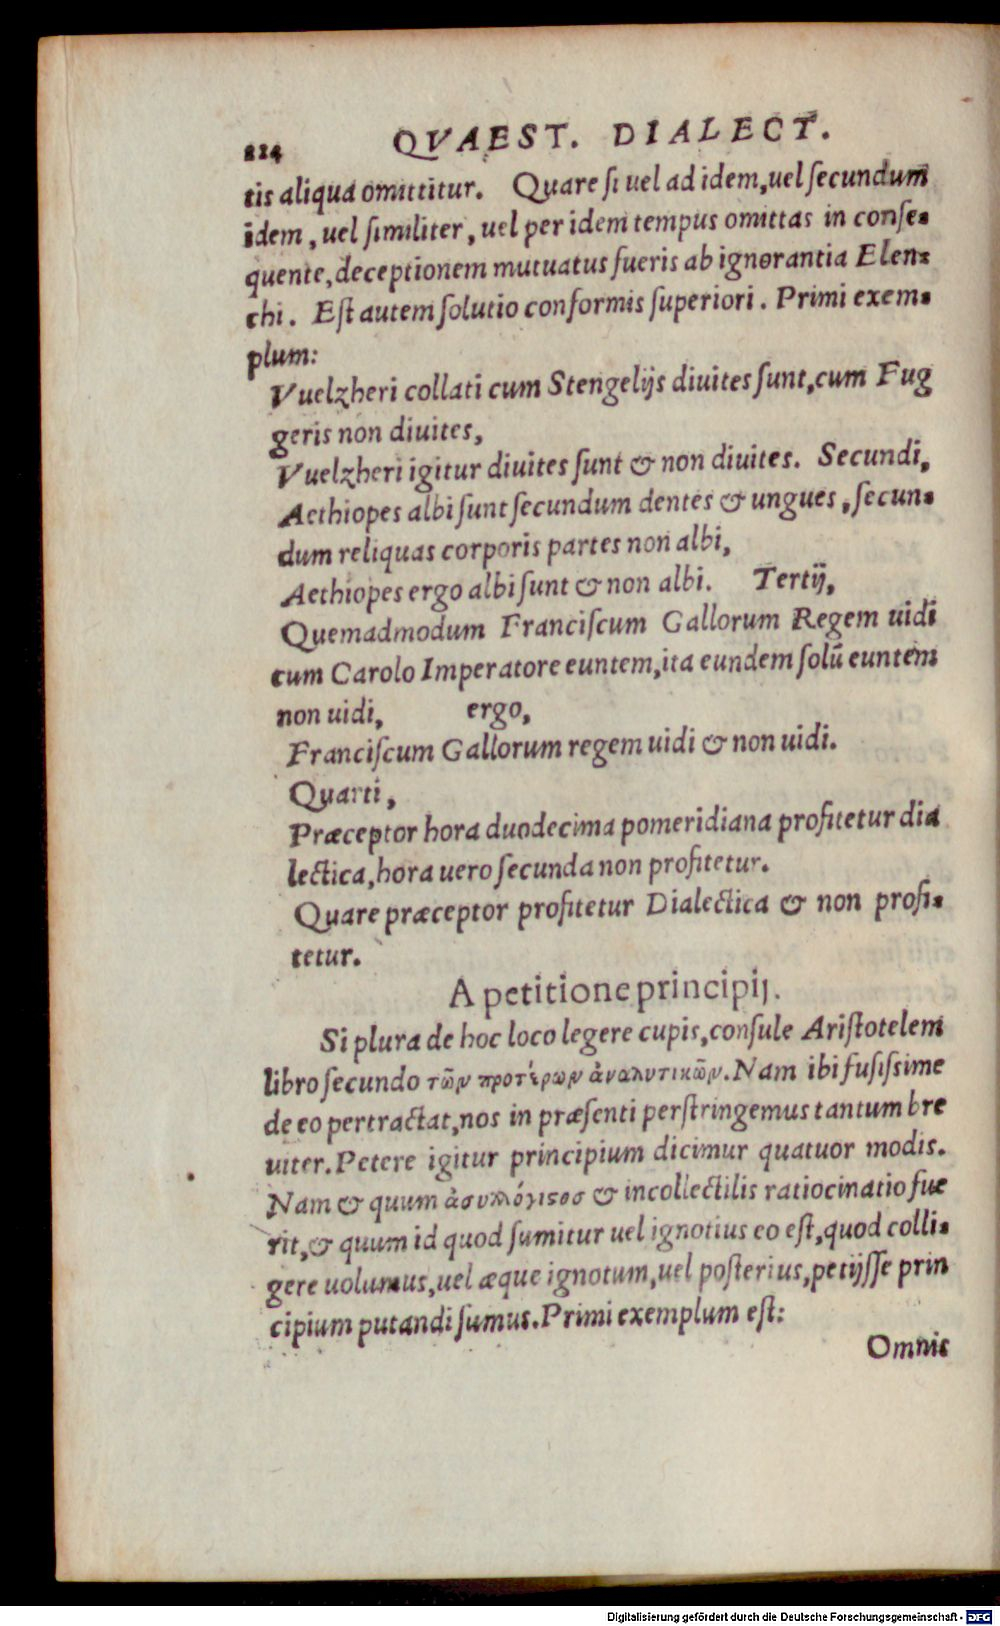 224 QVAEST. DIALECT.
tis aliqua omittitur. Quare si uel ad idem, uel secundum
idem, uel similiter, uel per idem tempus omittas in conse-
quente, deceptionem mutuatus fueris ab ignorantia Elen-
chi. Est autem solutio conformis superiori. Primi exem-
plum:
Vuelzheri collati cum Stengelijs diuites sunt, cum Fug
geris non diuites,
Vuelzheri igitur diuites sunt & non diuites. Secundi,
Aethiopes albi sunt secundum dentes & ungues, secun-
dum reliquas corporis partes non albi,
Aethiopes ergo albi sunt & non albi. Tertij,
Quemadmodum Franciscum Gallorum Regem uidi
cum Carolo Imperatore euntem, ita eundem solū euntem
non uidi, ergo,
Franciscum Gallorum regem uidi & non uidi.
Quarti,
Præceptor hora duodecima pomeridiana profitetur dia
lectica, hora uero secunda non profitetur.
Quare præceptor profitetur Dialectica & non profi-
tetur.
A petitione principij.
Si plura de hoc loco legere cupis, consule Aristotelem
libro secundo τῶν προτέρων ἀναλυτικῶν. Nam ibi fusissime
de eo pertractat, nos in præsenti perstringemus tantum bre
uiter. Petere igitur principium dicimur quatuor modis.
Nam & quum ἀσυλλόγιστος & incollectilis ratiocinatio fue
rit, & quum id quod sumitur uel ignotius eo est, quod colli-
gere uolumus, uel æque ignotum, uel posterius, petijsse prin
cipium putandi sumus. Primi exemplum est:
Omnis
Digitalisierung gefördert durch die Deutsche Forschungsgemeinschaft - DFG